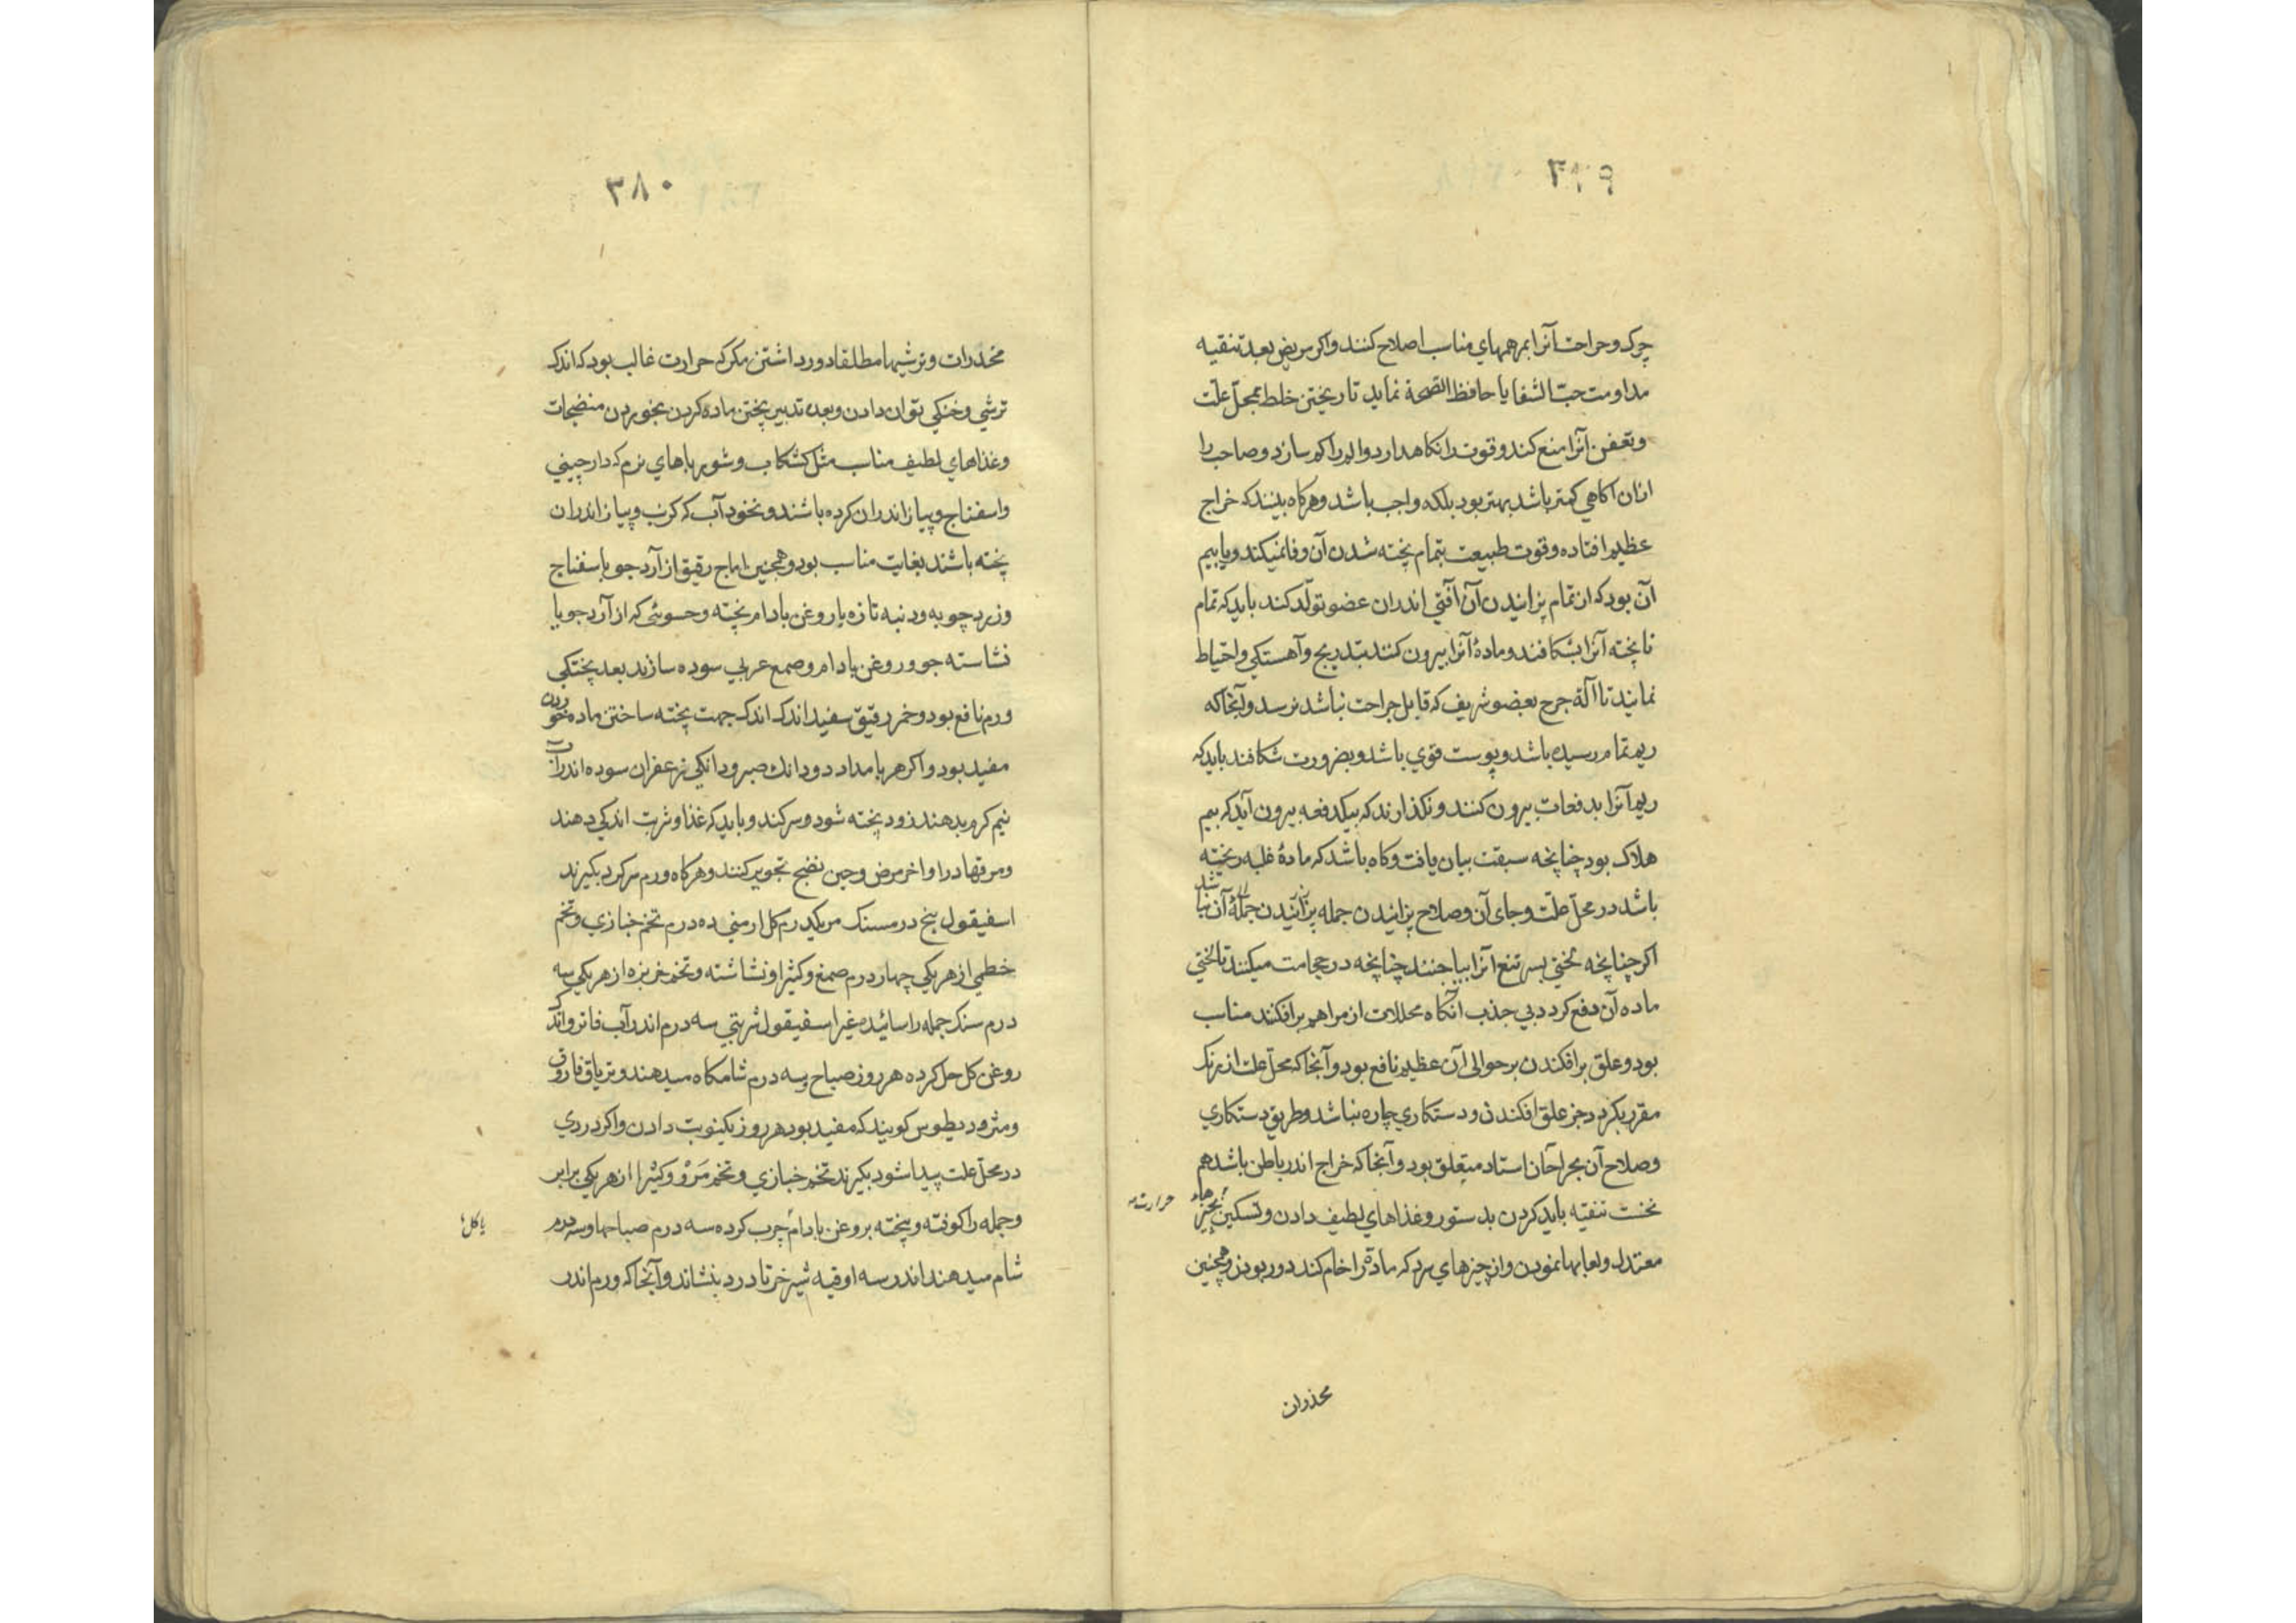 ۳۷۹
چرک و جراحت آنرا بمرهمهای مناسب اصلاح کنند و اکر مریض بعد تنقیه
مداومت حبّ الشفا یا حافظ الصّحة نماید تا ریختن خلط بمحلّ علّت
و تعفن آنرا منع کند و قوت را نکاه دارد و الم را کم سازد و صاحب را
ازان آکاهی کمتر باشد بهتر بود بلکه واجب باشد و هرکاه بینند که خراج
عظیم افتاده و قوت طبیعت بتمام پخته شدن آن وفا نمیکند و یا بیم
آن بود که از تمام پزانیدن آن آفتی اندران عضو تولّد کند باید که تمام
ناپخته آنرا بشکافند و مادهٔ آنرا بیرون کنند بتدریج و آهستکی و احتیاط
نمایند تا آلة جرح بعضو شریف که قابل جراحت نباشد نرسد و آنجا که
ریم تمام رسیده باشد و پوست قوی باشد و بضرورت شکافند باید که
ریم آنرا بدفعات بیرون کنند و نکذارند که بیکدفعه بیرون آید که بیم
هلاک بود چنانچه سبقت بیان یافت و کاه باشد که مادهٔ غلبه ریخته
باشد در محلّ علّت و جای آن و صلاح پزانیدن جمله پزانیدن جملهٔ آن نباشد
اکر چنانچه لختی بسر تیغ آنرا بیاجنند چنانچه در حجامت میکنند تا لختی
ماده آن دفع کردد بی جذب آنکاه محللات از مراهم برافکنند مناسب
بود و علق برافکندن بر حوالی آن عظیم نافع بود و آنجا که محلّ علت از برنک
مقرر بکردد جز علق افکندن و دستکاری چاره نباشد و طریق دستکاری
و صلاح آن بجراحان استاد متعلق بود و آنجا که خراج اندر باطن باشد هم
نخست تنقیه باید کردن بدستور و غذاهای لطیف دادن و تسکین بچیزهاء
حرارت
معتدل و لعابها نمودن و از چیزهای سرد که مادّه را خام کند دور بودن و همچنین
محذرات
۳۸۰
مخدرات و ترشیها مطلقا دور داشتن مکر که حرارت غالب بود که اندک
ترشی و خنکی توان دادن و بعده تدبیر پختن ماده کردن بخوردن منضجات
و غذاهای لطیف مناسب مثل کشکاب و شورباهای نرم که دارچینی
و اسفناج و پیاز اندران کرده باشند و نخود آب که کرنب و پیاز اندران
پخته باشند بغایت مناسب بود و همچنین اماج رقیق از آرد جو با سفناج
و زردچوبه و دنبه تازه یا روغن بادام پخته و حسوئی که از آرد جو یا
نشاسته جو و روغن بادام و صمع عربی سوده سازند بعد پختکی
ورم نافع بود و خمر رقیق سفید اندک اندک جهت پخته ساختن ماده خوردن
مفید بود و اکر هر بامداد دو دانک صبر و دانکی زعفران سوده اندر آب
نیم کرم بدهند زود پخته شود و سر کند و باید که غذا و شربت اندکی دهند
و مرقها در اواخر مرض و حین نضج تجویز کنند و هرکاه ورم سر کرد بکیرند
اسفیقول پنج درمسنک مر یکدرم کل ارمنی ده درم تخم خبازی و تخم
خطمی از هر یکی چهار درم صمغ و کثیرا و نشاشته و تخم خربزه از هر یکی سه
درم سنک جمله را سائیده غیر اسفیقول شربتی سه درم اندر آب فاتر و اندک
روغن کل حل کرده هر روز صباح و سه درم شامکاه میدهند و تریاق فاروق
و مثرودیطوس کویند که مفید بود هر روز یکنوبت دادن و اکر دردی
در محلّ علت پیدا شود بکیرند تخم خبازی و تخم مَرْو و کثیرا از هر یکی برابر
و جمله را کوفته و بیخته بروغن بادام چرب کرده سه درم صباحها و سه درم
یا کل
شام میدهند اندر سه اوقیه شیر خر تا درد بنشاند و آنجا که ورم اندر